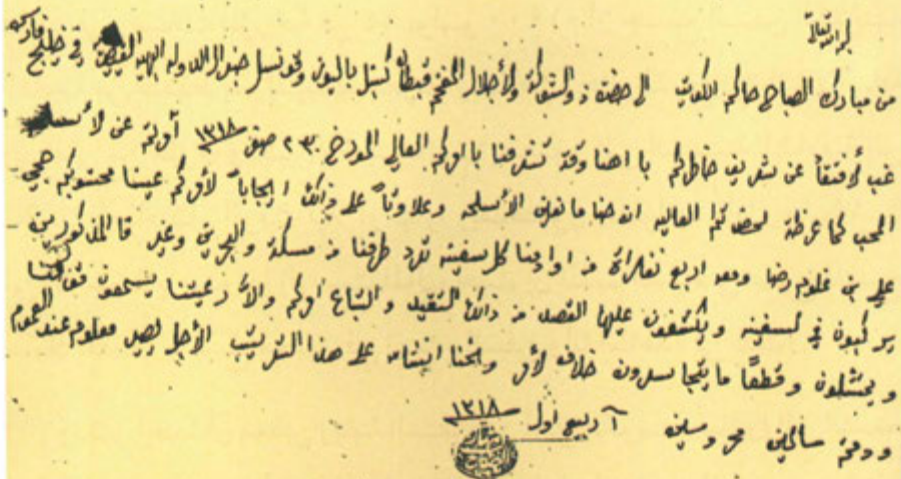 من مبارك الصباح حاكم الكويت الى حضرت ذو الشوكة والأجلال المفخم قبطان كنبل باليون وقونسل جنرال الدوله البهيه القيصريه في خليج فارس
غب لأفتقاً عن شريف خاطركم با اهنا وقة تشرفنا بااوركم العالي المورخ ٢٣ صفر ١٣١٨ أولة عن لأسلحه
المحب كما عرظة لحضرتكم العاليه اننا مانعين الأسلحه وعلاوتاً على ذالك ايجاباً لأوركم عينا محسوبكم حجي
علي بن غلوم رضا ومعه اربع نفرات من اوادمنا كل سفينه ترد طرفنا من مسكة والبحرين وغير قا المذكورين
يركبون في لسفينه ويكشفون عليها القصد من ذالك التقيد والتباع أوركم والا رعيتنا يسمعون قولنا
ويمتثلون وقطعاً ما يتجاسرون خلاف لأمر وانحنا انشاء على هذا الترتيب الأجل يصير معلوم عند العموم
ودمتم سالمين محروسين
ربيع اول ١٣١٨